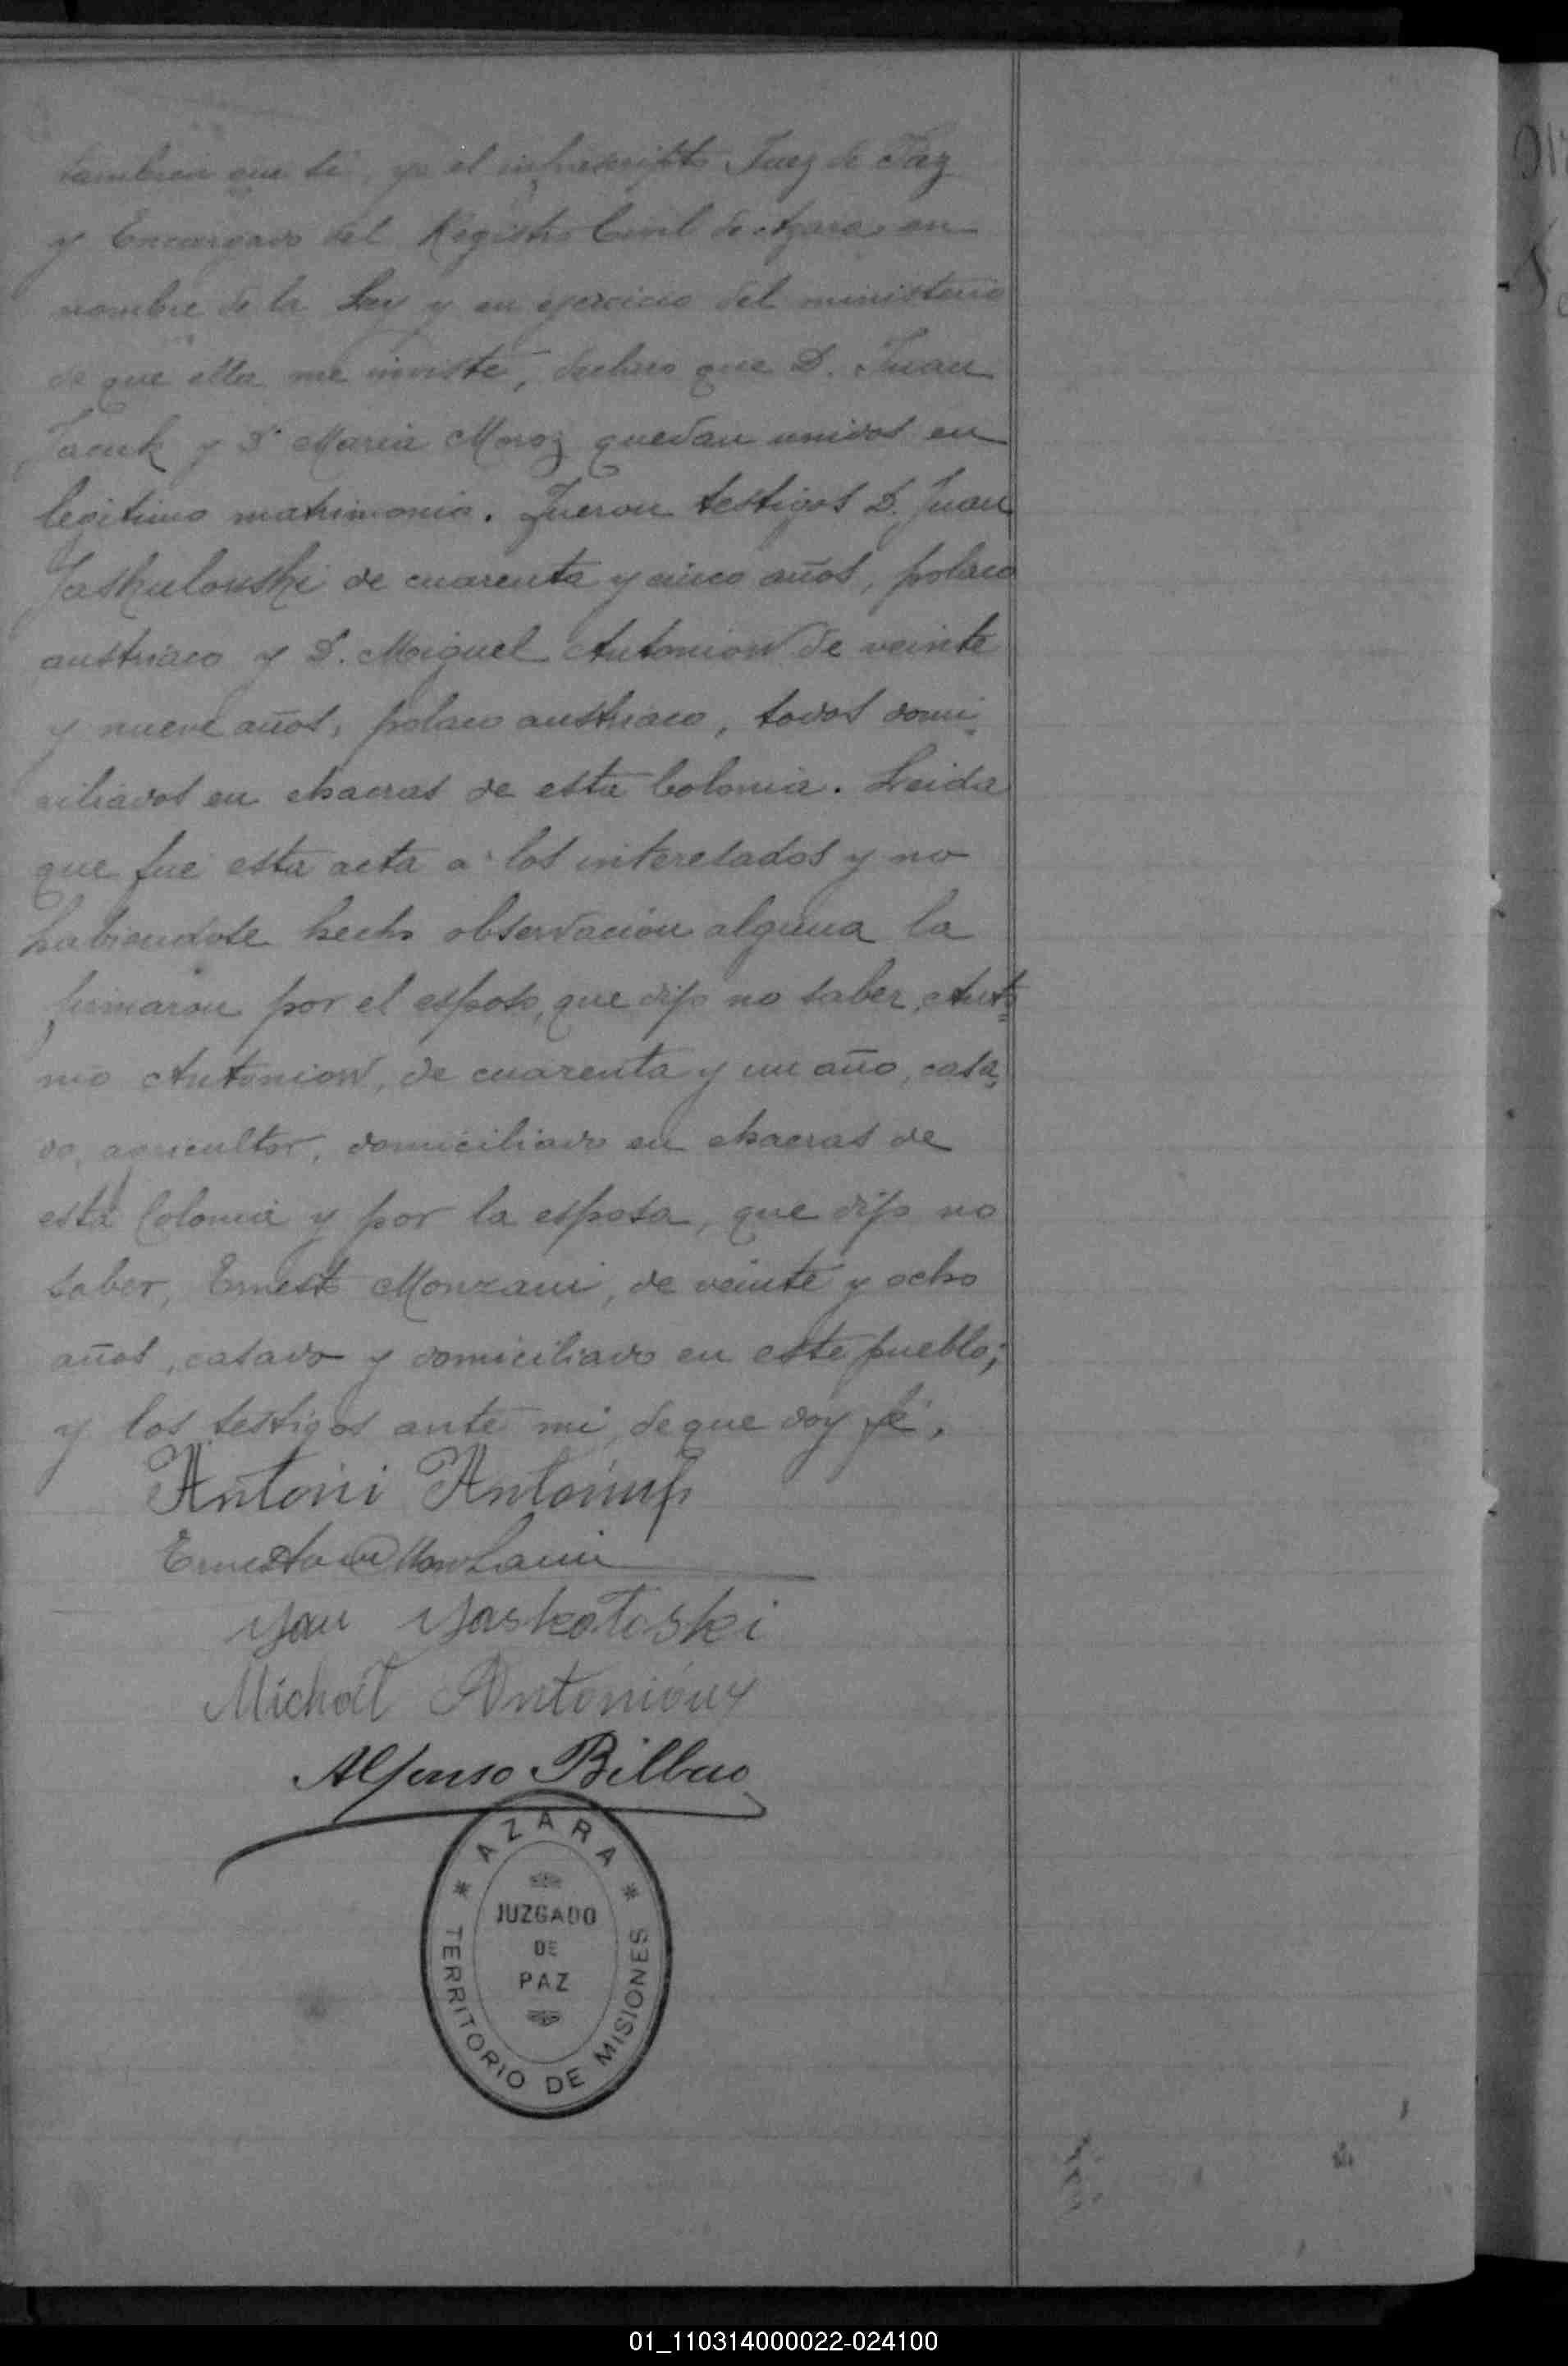 tambien que si, yo el infrascripto Juez de Paz
y Encargado del Registro Civil de Azara en
nombre de la Ley y en ejercicio del ministerio
de que ella me inviste, declaro que D. Juan
Jacuk y Dª Maria Moroz quedan unidos en
legitimo matrimonio. Fueron testigos D. Juan
Jaskulouski de cuarenta y cinco años, polaco
austriaco y D. Miguel Antoniow de veinte
y nueve años, polaco austriaco, todos domi-
ciliados en chacras de esta Colonia. Leida
que fue esta acta a los interesados y no
habiendose hecho observacion alguna la
firmaron por el esposo, que dijo no saber, Anto=
nio Antoniow, de cuarenta y un año, casa=
do, agricultor, domiciliado en chacras de
esta Colonia y por la esposa, que dijo no
saber, Ernesto Monzani, de veinte y ocho
años, casado y domiciliado en este pueblo;
y los testigos ante mi de que doy fé.
Antoni
Ernesto Monzani
Yan Yaskotoski
Michał Antoniów
Alfonso Bilbao
* AZARA *
JUZGADO
DE
PAZ
TERRITORIO DE MISIONES
01_110314000022-024100